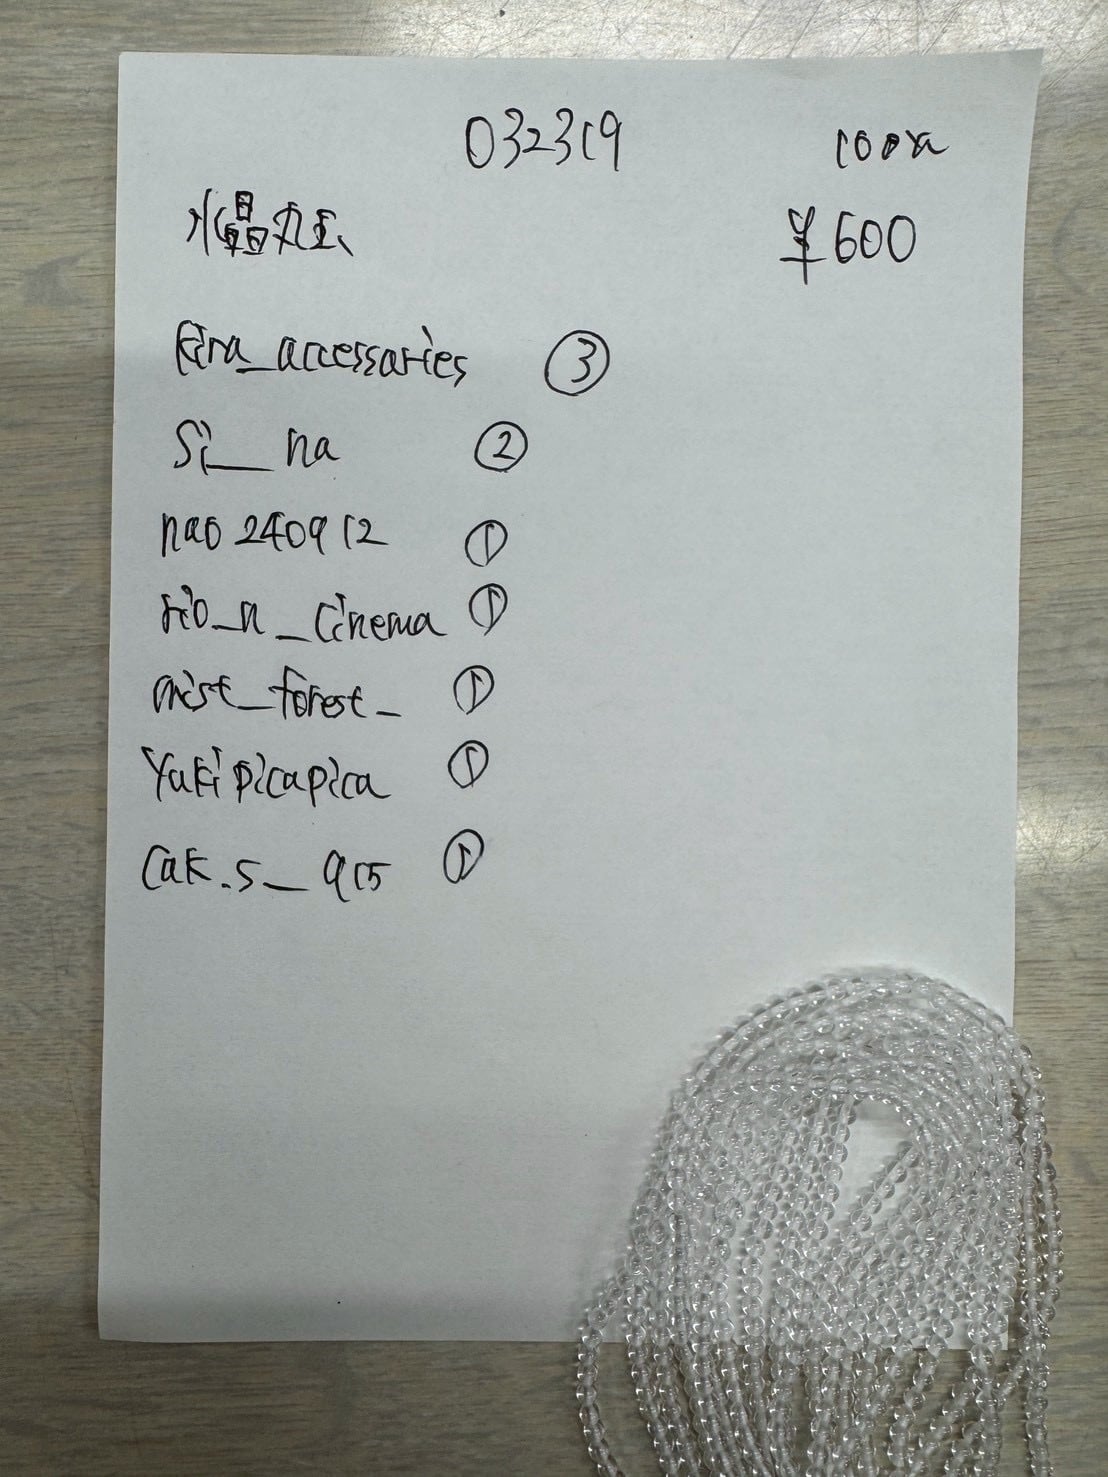 032319
水晶丸玉
¥600
kira_accessaries ③
Si__na ②
nao240912 ①
rio_n_cinema ①
mist_forest_ ①
Yukipicapica ①
cak.s_915 ①